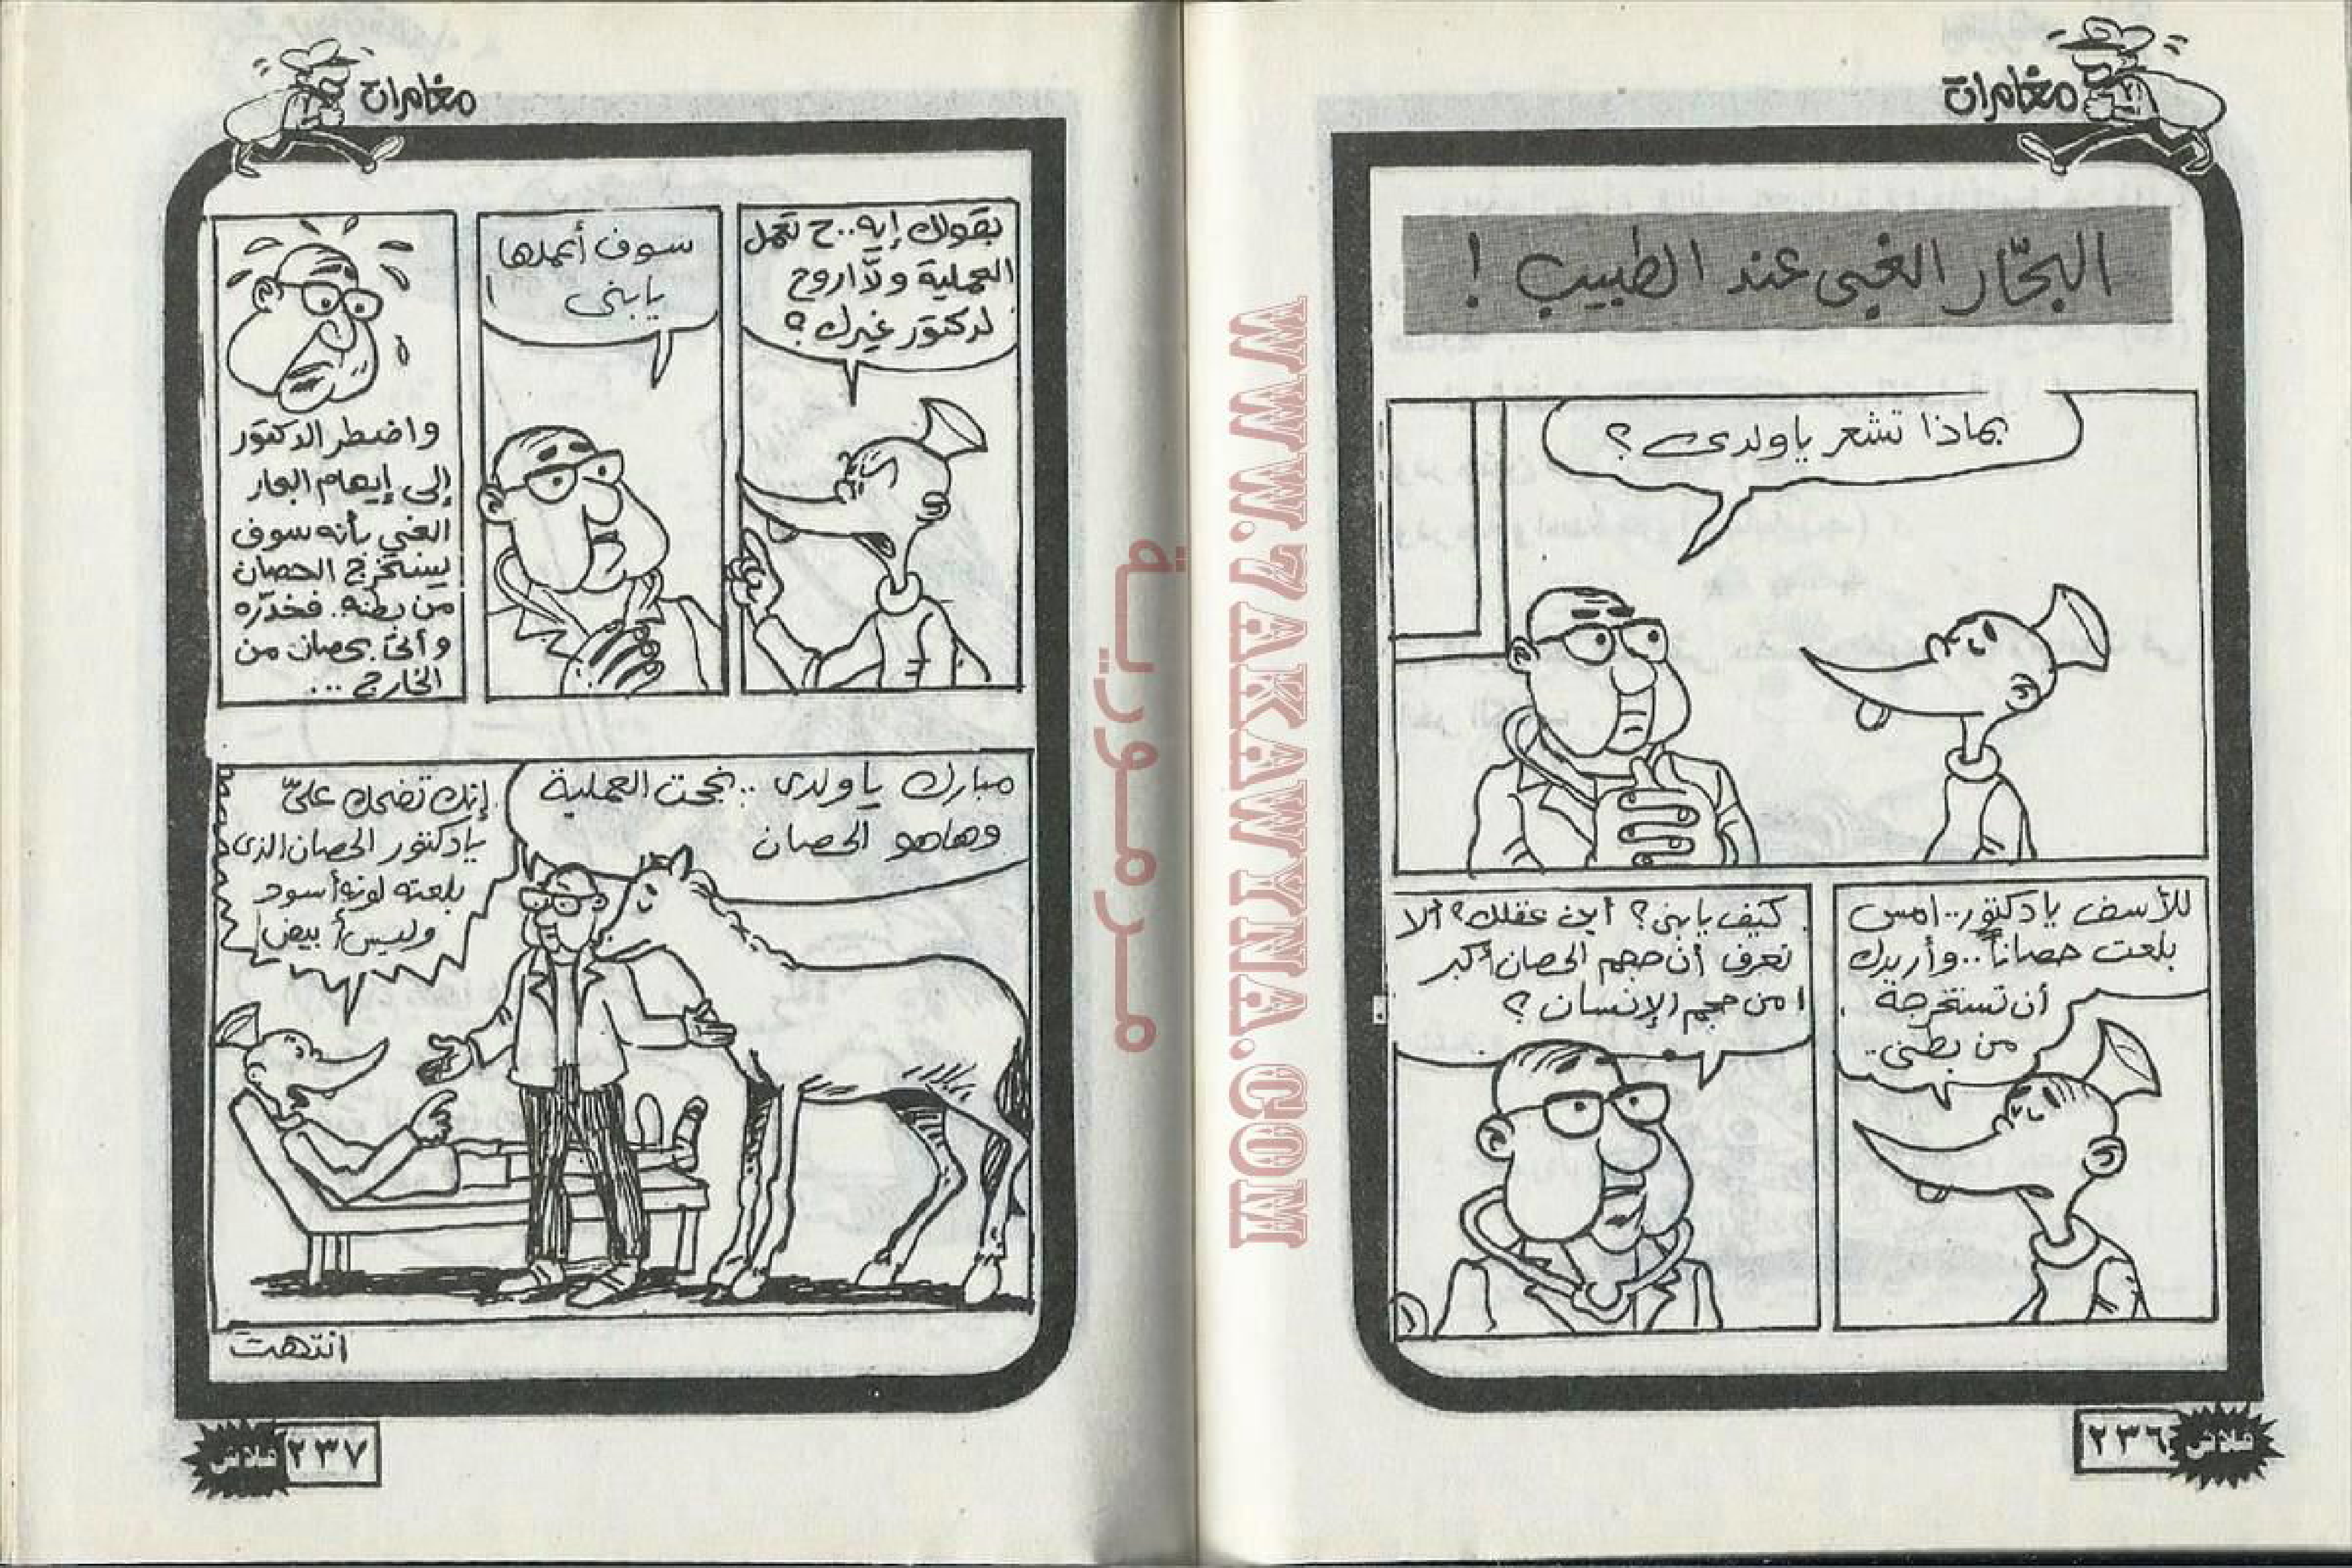 مغامرات
البحّار الغبى عند الطبيب !
بماذا تشعر ياولدى ؟
للأسف يادكتور.. امس
بلعت حصاناً.. وأريدك
أن تستخرجة
من بطنى..
كيف يابنى؟ أين عقلك؟ ألا
تعرف أن حجم الحصان أكبر
من حجم الإنسان ؟
٢٣٦
فلاش
WWW.7AKAWYNA.COM
مرمورية
مغامرات
بقولك إيه.. ح تعمل
العملية ولَّا اروح
لدكتور غيرك ؟
سوف أعملها
يابنى !
واضطر الدكتور
إلى إيهام البحار
الغبي بأنه سوف
يستخرج الحصان
من بطنه. فخدّره
وأتى بحصان من
الخارج ...
مبارك ياولدى .. نجحت العملية
وهاهو الحصان
إنك تضحك علىّ
يادكتور الحصان الذى
بلعته لونه أسود
وليس أبيض !
انتهت
٢٣٧
فلاش